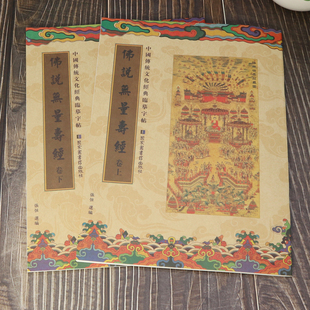 中國傳統文化經典臨摹字帖
佛說無量壽經
卷上
中國傳統文化經典臨摹字帖
佛說無量壽經
卷下